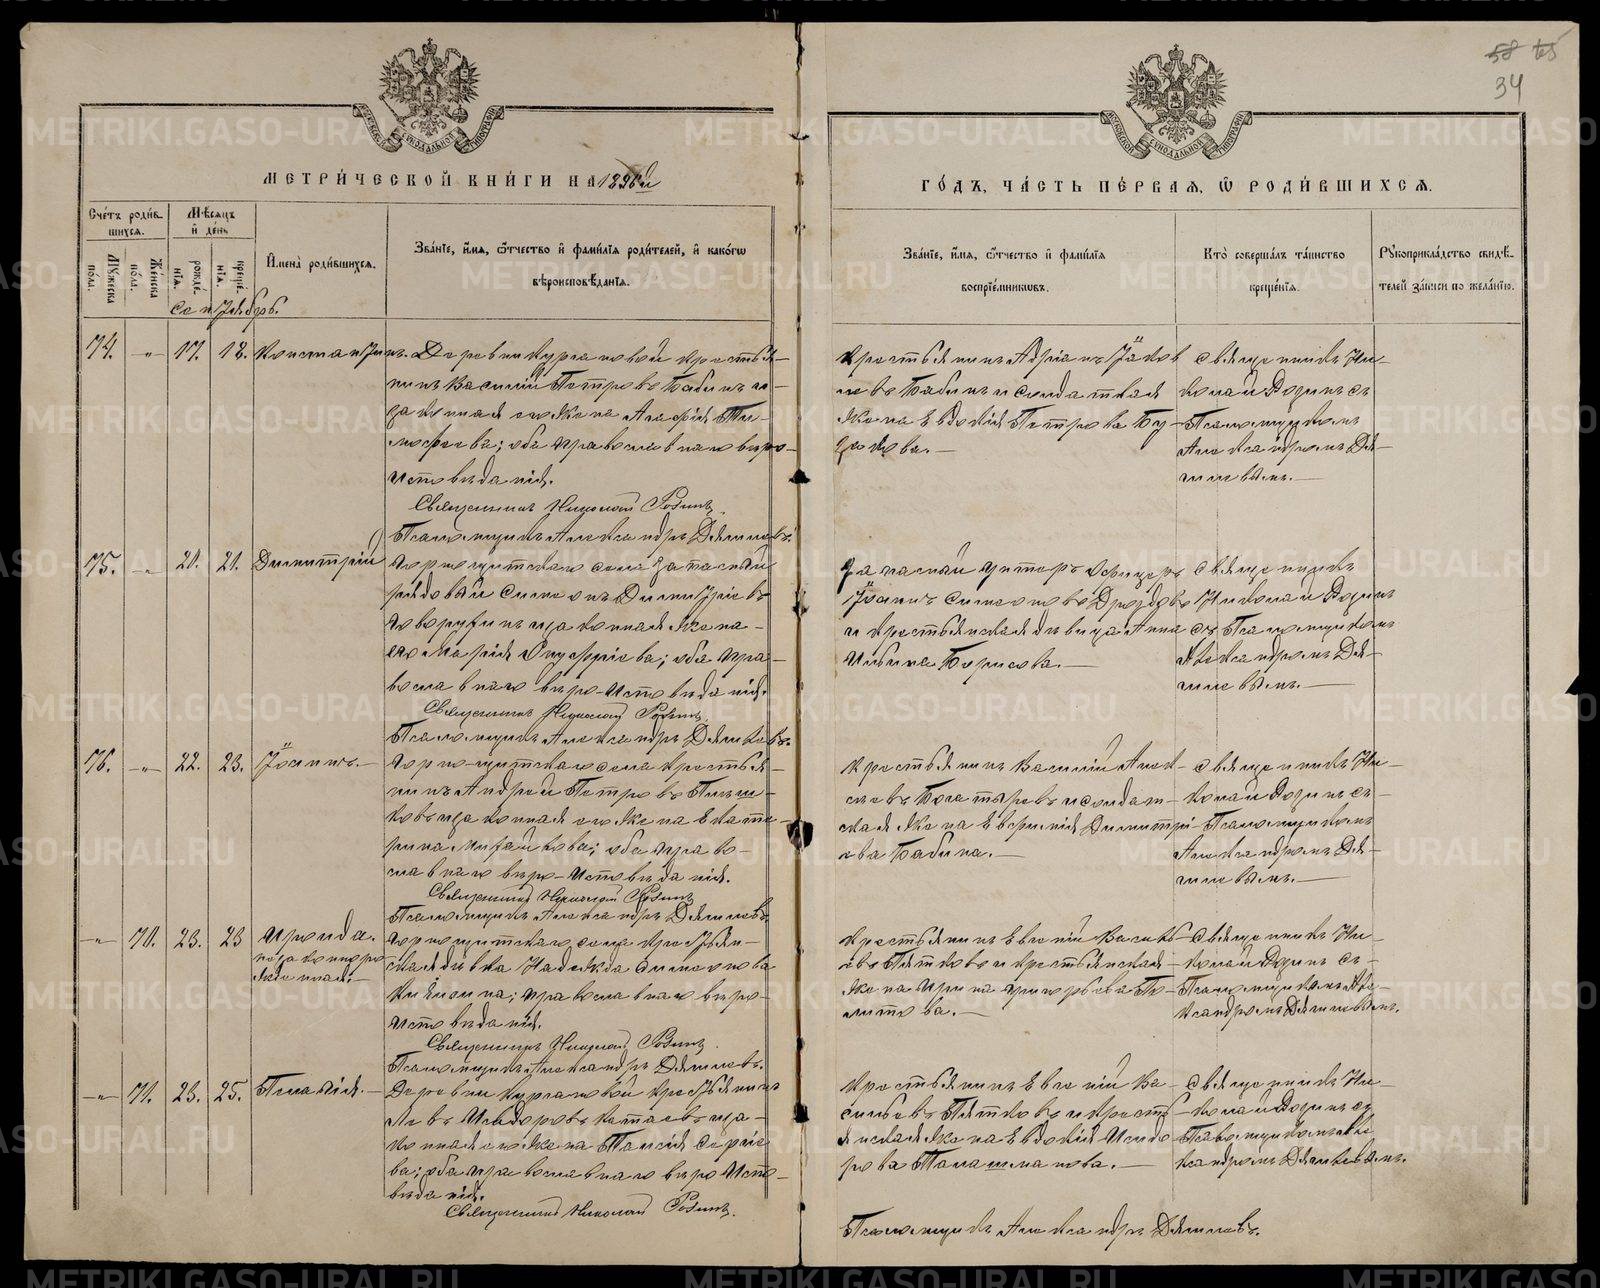 58 65
34
МЕТРИ́ЧЕСКОЙ КНИ́ГИ НА 1896й
ГО́ДЪ, ЧА́СТЬ ПЕ́РВАЯ, Ѿ РОДИ́ВШИХСЯ.
Сче́тъ роди́в-
шихся.
Мѣсяцъ
и де́нь
Мꙋжеска пола.
Же́нска пола.
рожде́нія.
креще́нія.
Имена̀ роди́вшихся.
Зва́ніе, и́мя, ѻ҆́тчество и фами́лія роди́телей, и како́гѡ
вѣроисповѣ́данія.
Зва́ніе, и́мя, ѻ҆́тчество и фами́лія
воспріе́мниковъ.
Кто̀ соверша́лъ та́инство
креще́нія.
Рꙋкоприкла́дство свидѣ́-
телей за́писи по жела́нію.
Сентябрь.
74. -"- 17. 18. Константинъ.
Деревни Кургановой крестья-
нинъ Василій Петровъ Бабинъ и
законная его жена Агафія Ти-
мофеева; оба православнаго веро-
исповѣданія.
Священникъ Николай Розинъ.
Псаломщикъ Александръ Дягилевъ.
Крестьянинъ Адріанъ Іаков
левъ Бабинъ и солдатская
жена Евдокія Петрова Бу-
зикова.-
Священникъ Ни-
колай Розинъ съ
Псаломщикомъ
Александромъ Дя-
гилевымъ.-
75. -"- 20. 21. Димитрій
Горнощитскаго села запасный
рядовой Симеонъ Димитріевъ
Говорухинъ и законная жена
его Марія Онуфріева; оба пра-
вославнаго вѣро-исповѣданія.
Священникъ Николай Розинъ.
Псаломщикъ Александръ Дягилевъ.
Запасный унтеръ офицеръ
Іоаннъ Симеоновъ Дроздовъ
и крестьянская дѣвица Анна
Борисова.-
Священникъ
Николай Розинъ
съ Псаломщикомъ
Александромъ Дя-
гилевымъ.-
76. -"- 22. 23. Іоаннъ.-
Горно-щитскаго села крестья-
нинъ Андрей Петровъ Пньш-
ковъ и законная его жена Екате-
рина Михайлова; оба право-
славнаго вѣро-исповѣданія.
Священникъ Николай Розинъ
Псаломщикъ Александръ Дягилевъ.
Крестьянинъ Василій Алек-
сѣевъ Богатыревъ и солдат-
ская жена Евфимія Димитрі-
ева Бабина.-
Священникъ Ни-
колай Розинъ съ
Псаломщикомъ
Александромъ Дя-
гилевымъ.-
-"- 70. 23. 23 Ираида.
незаконноро
жденная.-
Горнощитскаго села крестьян-
ская дѣвка Надежда Симеонова
православнаго вѣро-
исповѣданія.
Священникъ Николай Розинъ.
Псаломщикъ Александръ Дягилевъ.
Крестьянинъ Евгеній Василь-
евъ Пятковъ и крестьянская
жена Ирина Григорьева По-
литова.-
Священникъ Ни-
колай Розинъ съ-
Псаломщикомъ Але-
ксандромъ Дягилевымъ.
-"- 71. 23. 25. Пелагія.-
Деревни Кургановой крестьянинъ
Левъ Исидоровъ Катаевъ и за-
конная его жена Таисія Сергіе
ва; оба православнаго вѣро испо-
вѣданія.
Священникъ Николай Розинъ.
Крестьянинъ Евгеній Ва-
сильевъ Пятковъ и кресть-
янская жена Евдокія Исидо-
рова Талашманова.-
Священникъ Ни-
колай Розинъ съ
Псаломщикомъ Але
ксандромъ Дягилевымъ.
Псаломщикъ Александръ Дягилевъ.
METRIKI.GASO-URAL.RU